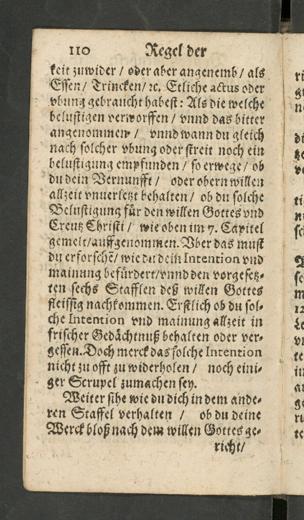 110 Regel der
keit zuwider / oder aber angenemb / als
Essen / Trincken / ꝛc. Etliche actus oder
vbung gebraucht habest: Als die welche
belustigen verworffen / vnnd das bitter
angenommen / vnnd wann du gleich
nach solcher vbung oder streit noch ein
belustigung empfunden / so erwege / ob
du dein Vernunfft / oder obern willen
allzeit vnuerletzt behalten / ob du solche
Belustigung für den willen Gottes vnd
Creutz Christi / wie oben im 7. Capitel
gemelt / auffgenommen. Vber das must
du erforschẽ / wie du dein Intention vnd
mainung befürdert / vnnd den vorgesetz-
ten sechs Stafflen deß willen Gottes
fleissig nachkommen. Erstlich ob du sol-
che Intention vnd mainung allzeit in
frischer Gedächtnuß behalten oder ver-
gessen. Doch merck das solche Intention
nicht zu offt zu widerholen / noch eini-
ger Scrupel zumachen sey.
Weiter sihe wie du dich in dem ande-
ren Staffel verhalten / ob du deine
Werck bloß nach dem willen Gottes ge-
richt /